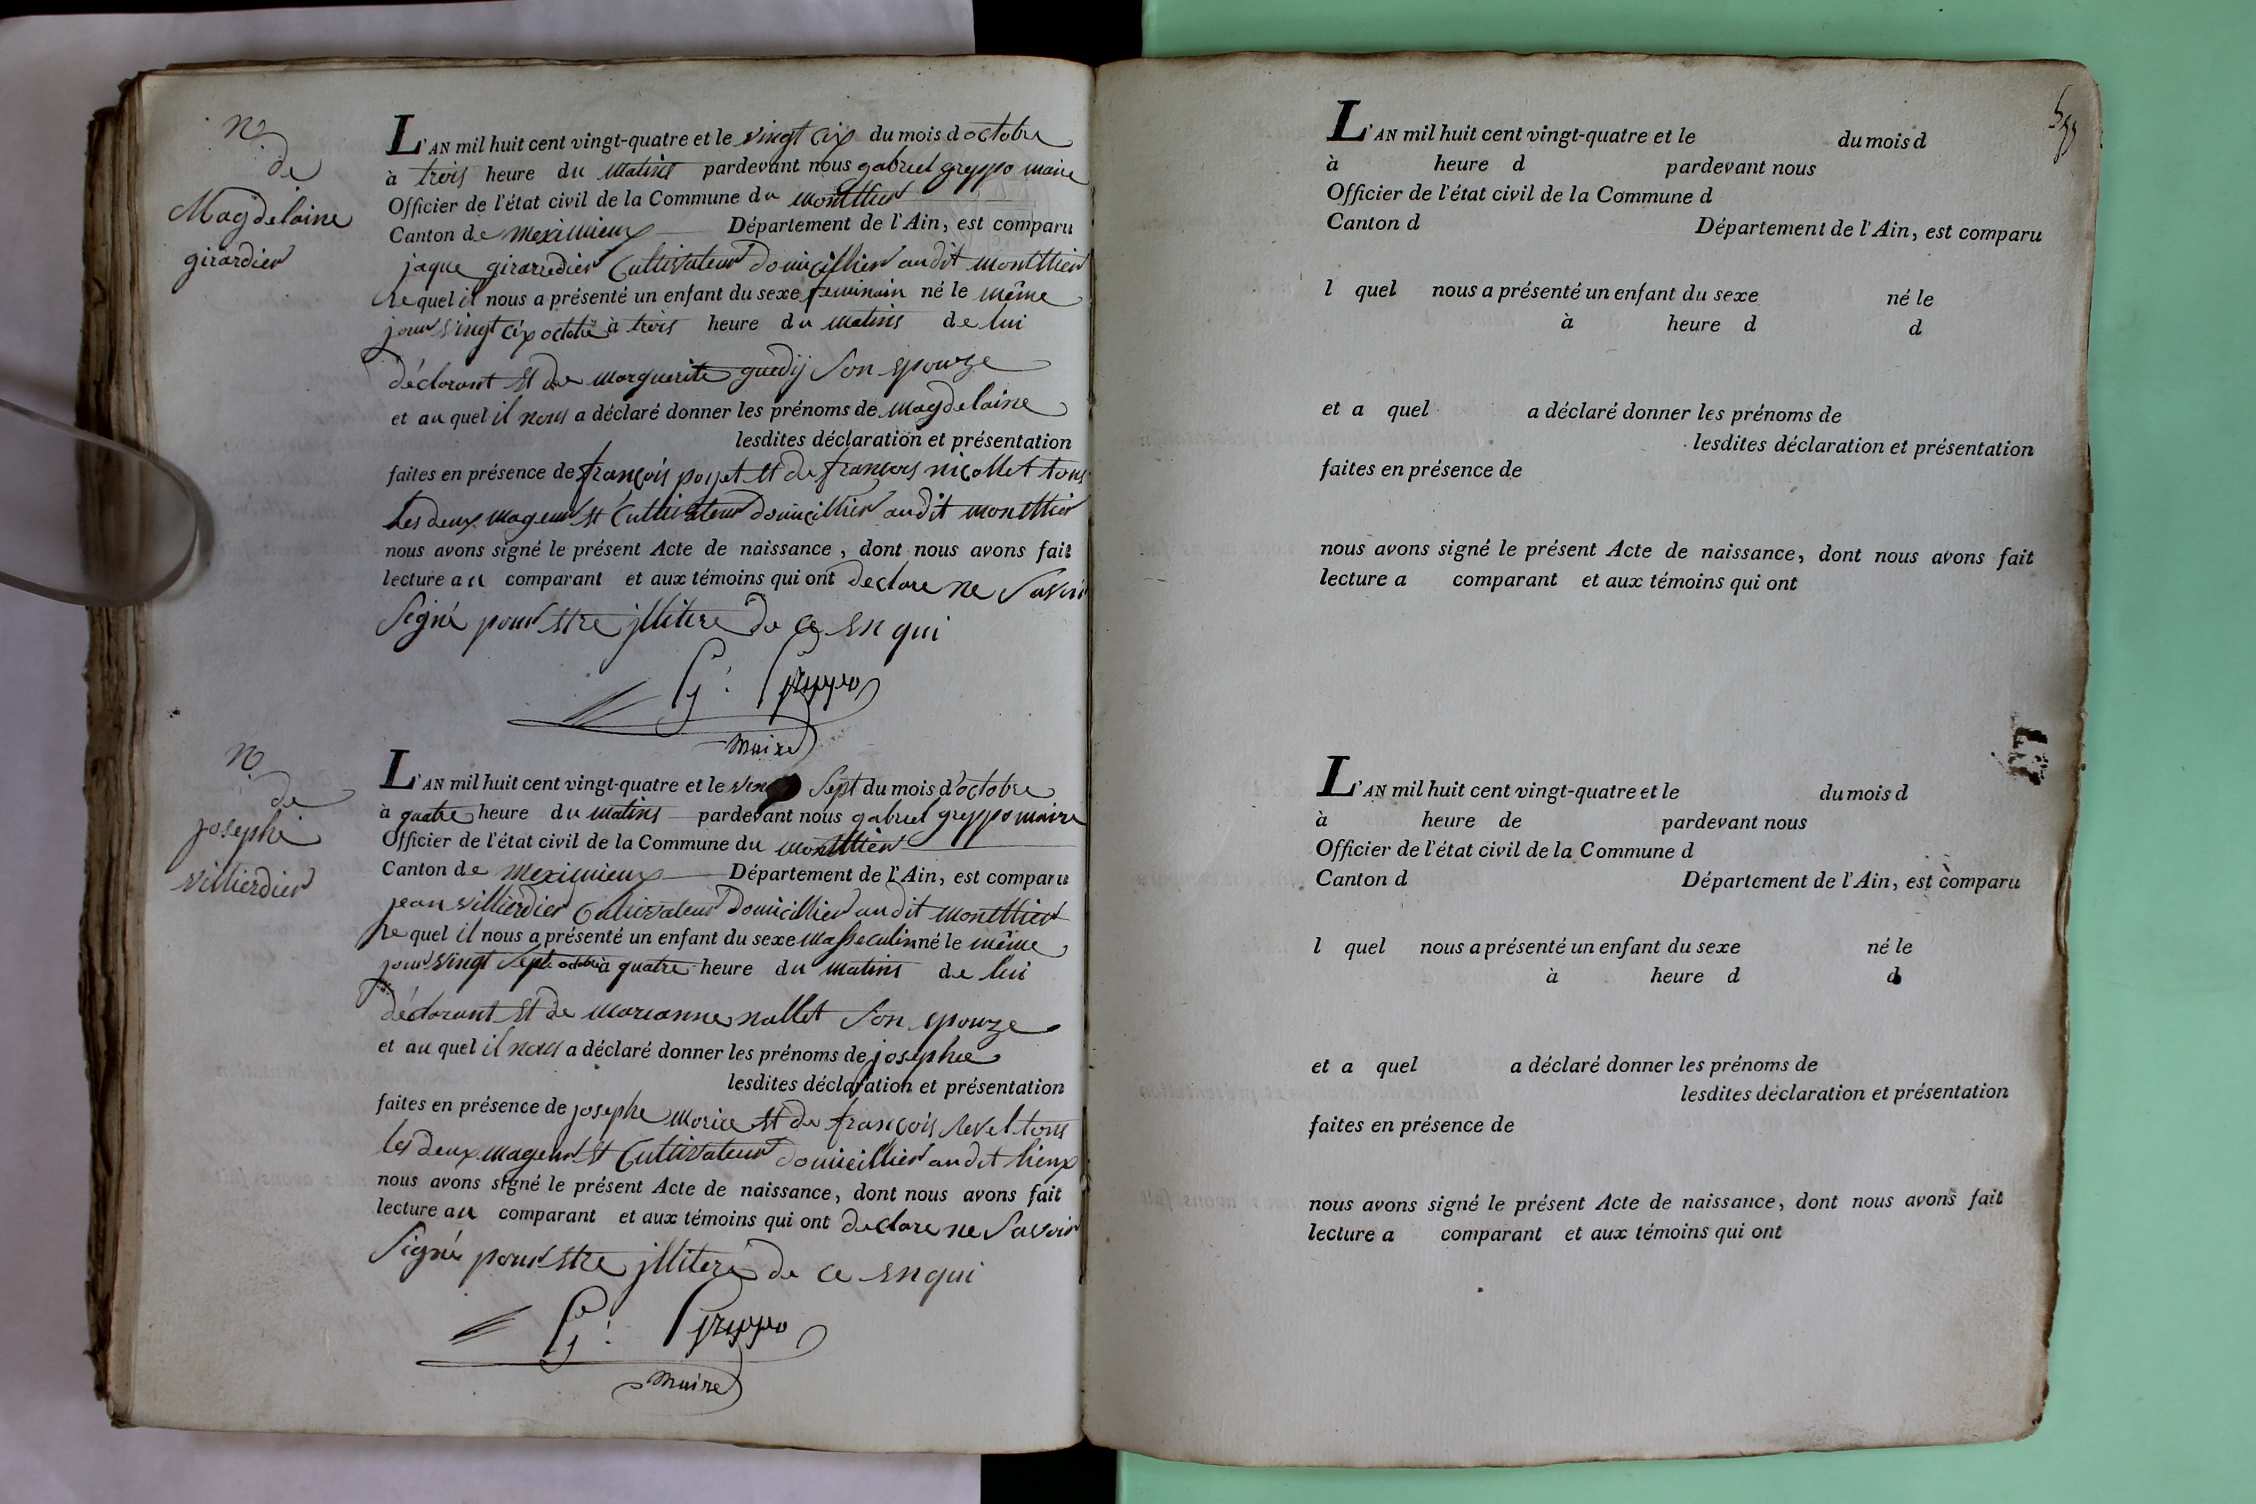 no
de
Magdelaine
girardier
L'AN mil huit cent vingt-quatre et le vingt cix du mois d octobre
à trois heure du matins pardevant nous gabriel greppo maire
Officier de l'état civil de la Commune du monthier
Canton de meximieux Département de l'Ain, est comparu
jaque girardier Cultivateur domicillier audit montthier
le quel il nous a présenté un enfant du sexe feminain né le même
jour vingt cix octobre à trois heure du matins de lui
déclarant et de marguerite guedij son epouze
et au quel il nous a déclaré donner les prénoms de magdelaine
lesdites déclaration et présentation
faites en présence de françois poyet et de françois nicollet tous
les deux mageur et Cultivateur domicillier audit montthier
nous avons signé le présent Acte de naissance, dont nous avons fait
lecture au comparant et aux témoins qui ont declare ne savoir
signé pour etre jllitere de ce en qui
G. Greppo
maire
no
de
josephe
villierdier
L'AN mil huit cent vingt-quatre et le vingt sept du mois d'octobre
à quatre heure du matins pardevant nous gabriel greppo maire
Officier de l'état civil de la Commune du montthier
Canton de meximieux Département de l'Ain, est comparu
jean villierdier Cultivateur domicillier audit montthier
le quel il nous a présenté un enfant du sexe masseculin né le même
jour vingt sept octobre à quatre heure du matins de lui
déclarant et de marianne nallet son epouze
et au quel il nous a déclaré donner les prénoms de josephe
lesdites déclaration et présentation
faites en présence de josephe morice et de françois revel tous
les deux mageur et Cultivateur domicillier audit lieux
nous avons signé le présent Acte de naissance, dont nous avons fait
lecture au comparant et aux témoins qui ont declare ne savoir
signé pour etre jllitere de ce en qui
G. Greppo
maire
L'AN mil huit cent vingt-quatre et le du mois d
à heure d pardevant nous
Officier de l'état civil de la Commune d
Canton d Département de l'Ain, est comparu
l quel nous a présenté un enfant du sexe né le
à heure d d
et a quel a déclaré donner les prénoms de
lesdites déclaration et présentation
faites en présence de
nous avons signé le présent Acte de naissance, dont nous avons fait
lecture a comparant et aux témoins qui ont
L'AN mil huit cent vingt-quatre et le du mois d
à heure de pardevant nous
Officier de l'état civil de la Commune d
Canton d Département de l'Ain, est comparu
l quel nous a présenté un enfant du sexe né le
à heure d d
et a quel a déclaré donner les prénoms de
lesdites déclaration et présentation
faites en présence de
nous avons signé le présent Acte de naissance, dont nous avons fait
lecture a comparant et aux témoins qui ont